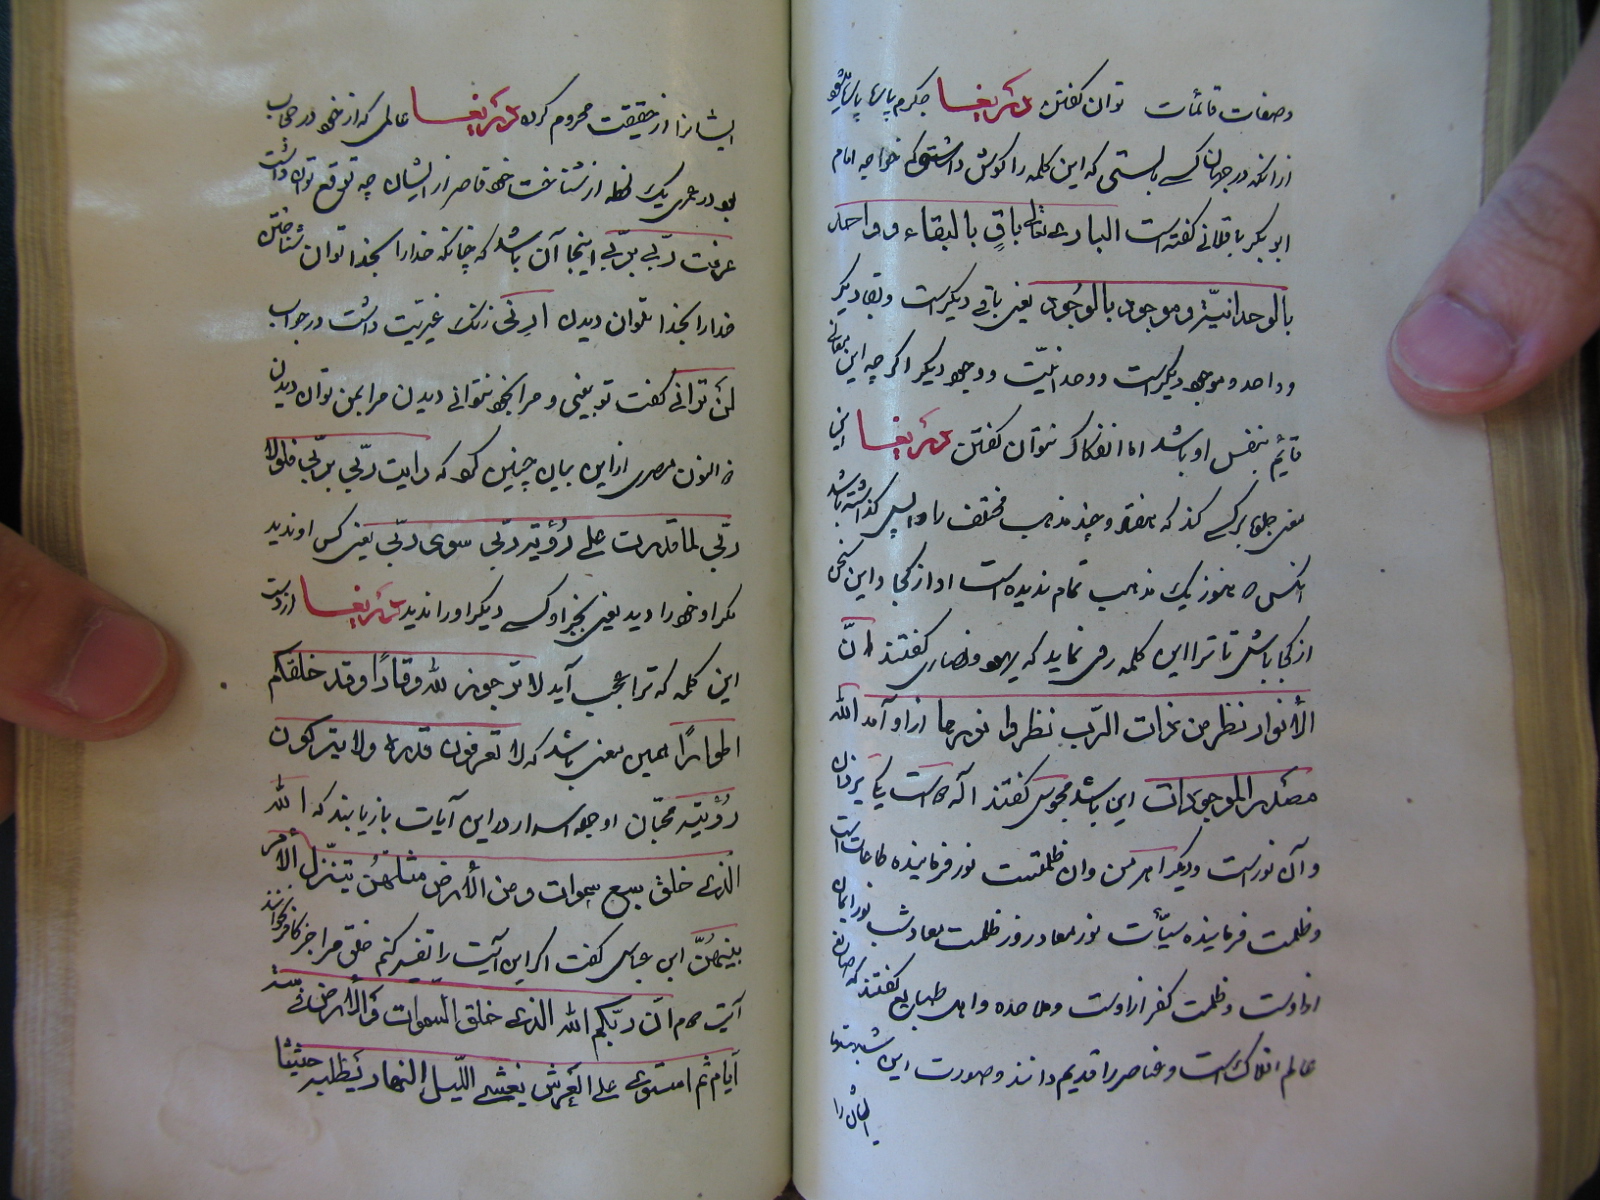 وصفات قائمات توان گفتن ای عزیز چکنم پاره پاره
ازانکه در جهان کسی بایستی که این کلمه را گوش داشتی که خواجه امام
ابوبکر باقلانی گفته است الباری تعالی باقٍ بالبقاء وواحد
بالوحدانیّة وموجود بالوجُود یعنی باقی دیگرست وبقا دیگر
وواحد وموجود دیگرست ووحدانیّت ووجود دیگر اگرچه این معانی
قایم بنفس او باشد اما انفکاک نتوان گفتن این
معنی جلوه بر کسی کند که هفتاد وچند مذهب مختلف را واپس گذاشته باشد
آنکس که هنوز یک مذهب تمام ندیده است او از کجا واین سخن
از کجا باش تا ترا این کلمه روی نماید که یهود ونصاری گفتند انّ
الأنوار نظر من ذات الرّب نظروا نورها ازو آمد الله
مصدر الموجودات این باشد مجوس گفتند اله دو است یکی یزدان
وآن نورست ودیگر اهرمن وآن ظلمتست نور فرماینده طاعات است
وظلمت فرماینده سیّأت نور میعاد روز ظلمت معاد شب نور ایمان
ازوست وظلمت کفر ازاوست وملاحده واهل طبایع گفتند که صانع
عالم افلاک است وعناصر را قدیم دانند وصورت این
ایشان را
ایشانرا از حقیقت محروم کرده عالمی که از خود در حجاب
بود در عمری یک لحظه از شناخت خود قاصر از ایشان چه توقع توان داشت
عرفت ربّی بربّی اینجا آن باشد که چنانکه خدا را بخدا توان شناختن
خدا را بخدا بتوان دیدن ارنی رنگ غیریت داشت در جواب
لن ترانی گفت تو نبینی ومرا بخود نتوانی دیدن مرا بمن توان دیدن
ذوالنون مصری ازاین بیان چنین گوید که رایت ربّی بربّی فلولا
ربّی لما قدرت علی رُؤیة ربّی سوی ربّی یعنی کس او ندید
مگر او خود را دید یعنی بجز او کسی دیگر او را ندید از دست
این کلمه که ترا عجب آید لا ترجون لله وقارًا وقد خلقکم
اطوارًا همین معنی باشد که لا تعرفون قدره ولا یترکون
رُؤیته محبّان او جمله اسرار در این آیات بازیابند که الله
الذی خلق سبع سموات ومن الأرض مثلهُنّ یتنزل الأمر
بینهُنّ ابن عباس گفت اگر این آیت را تفسیر کنم خلق مرا جز کافر نخوانند
آیت دوم انّ ربّکم الله الذی خلق السّموات والأرض فی ستّة
أیام ثم استوی علی العَرش یغشی اللّیل النهار یَطلبه حثیثا